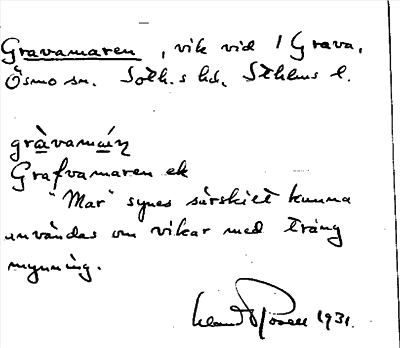 Gravamaren, vik vid 1 Grava,
Ösmo sn. Soth.s hd, Sthlms l.
gràvamáṛṇ
Grafvamaren ek
"Mar" synes särskilt kunna
användas om vikar med trång
mynning.
1931.